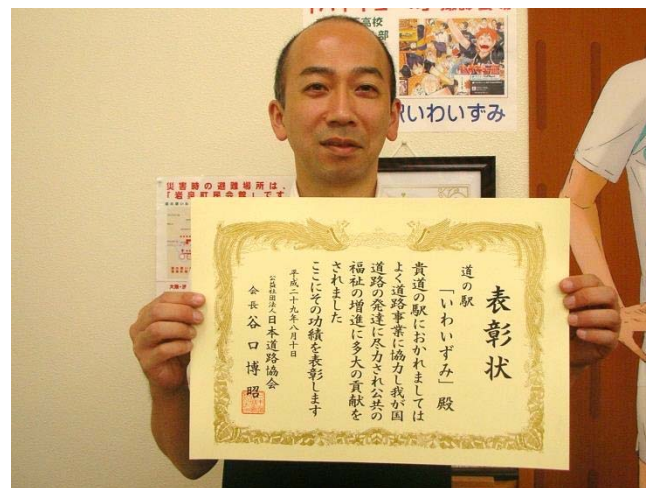 高校
部
駅いわいずみ
災害時の避難場所は、
「岩泉町民会館」です
表彰状
道の駅
「いわいずみ」殿
貴道の駅におかれましては
よく道路事業に協力し我が国
道路の発達に尽力され公共の
福祉の増進に多大の貢献を
されました
ここにその功績を表彰します
平成二十九年八月十日
公益社団法人日本道路協会
会長谷口博昭